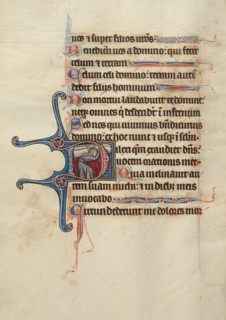 uos et super filios uros
Benedicti uos a domino: qui fecit
celum et terram
Celum celi domino: terram aute
dedit filiis hominum
Non mortui laudabunt te domine:
neqz omnes qi descendit in infernum
Sed nos qui uiuimus bndicimus
domino: ex hoc nunc et usqz in sclm
Dilexi qm exaudiet dns:
uocem orationis mee
Quia inclinauit au
rem suam michi: et in diebz meis
inuocabo
Circumdederunt me dolores mor